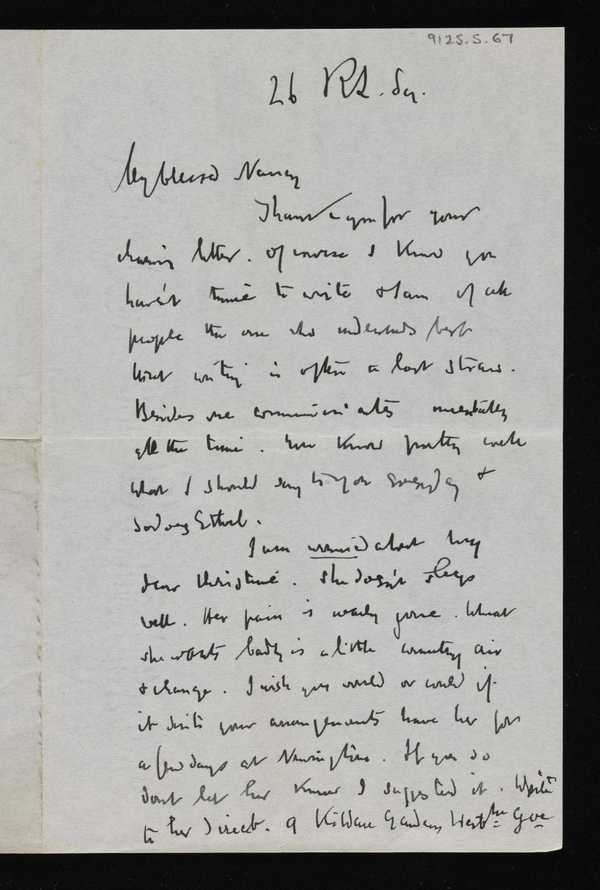 9125.S.67
26 R.L. Sq.
My blessed Nancy
Thank you for your
charming letter. Of course I know you
haven't time to write & I am of all
people the one who understands best
that writing is often a last straw.
Besides we communicate mentally
all the time. You know pretty well
what I should say to you everyday &
so does Ethel.
I am worried about my
dear Christine. She doesn't sleep
well. Her pain is nearly gone. What
she wants badly is a little country air
& change. I wish you would or could if
it suits your arrangements have her for
a few days at Newington. If you do
don't let her know I suggested it. Write
to her direct. 9 Kildare Gardens Westbne Gve